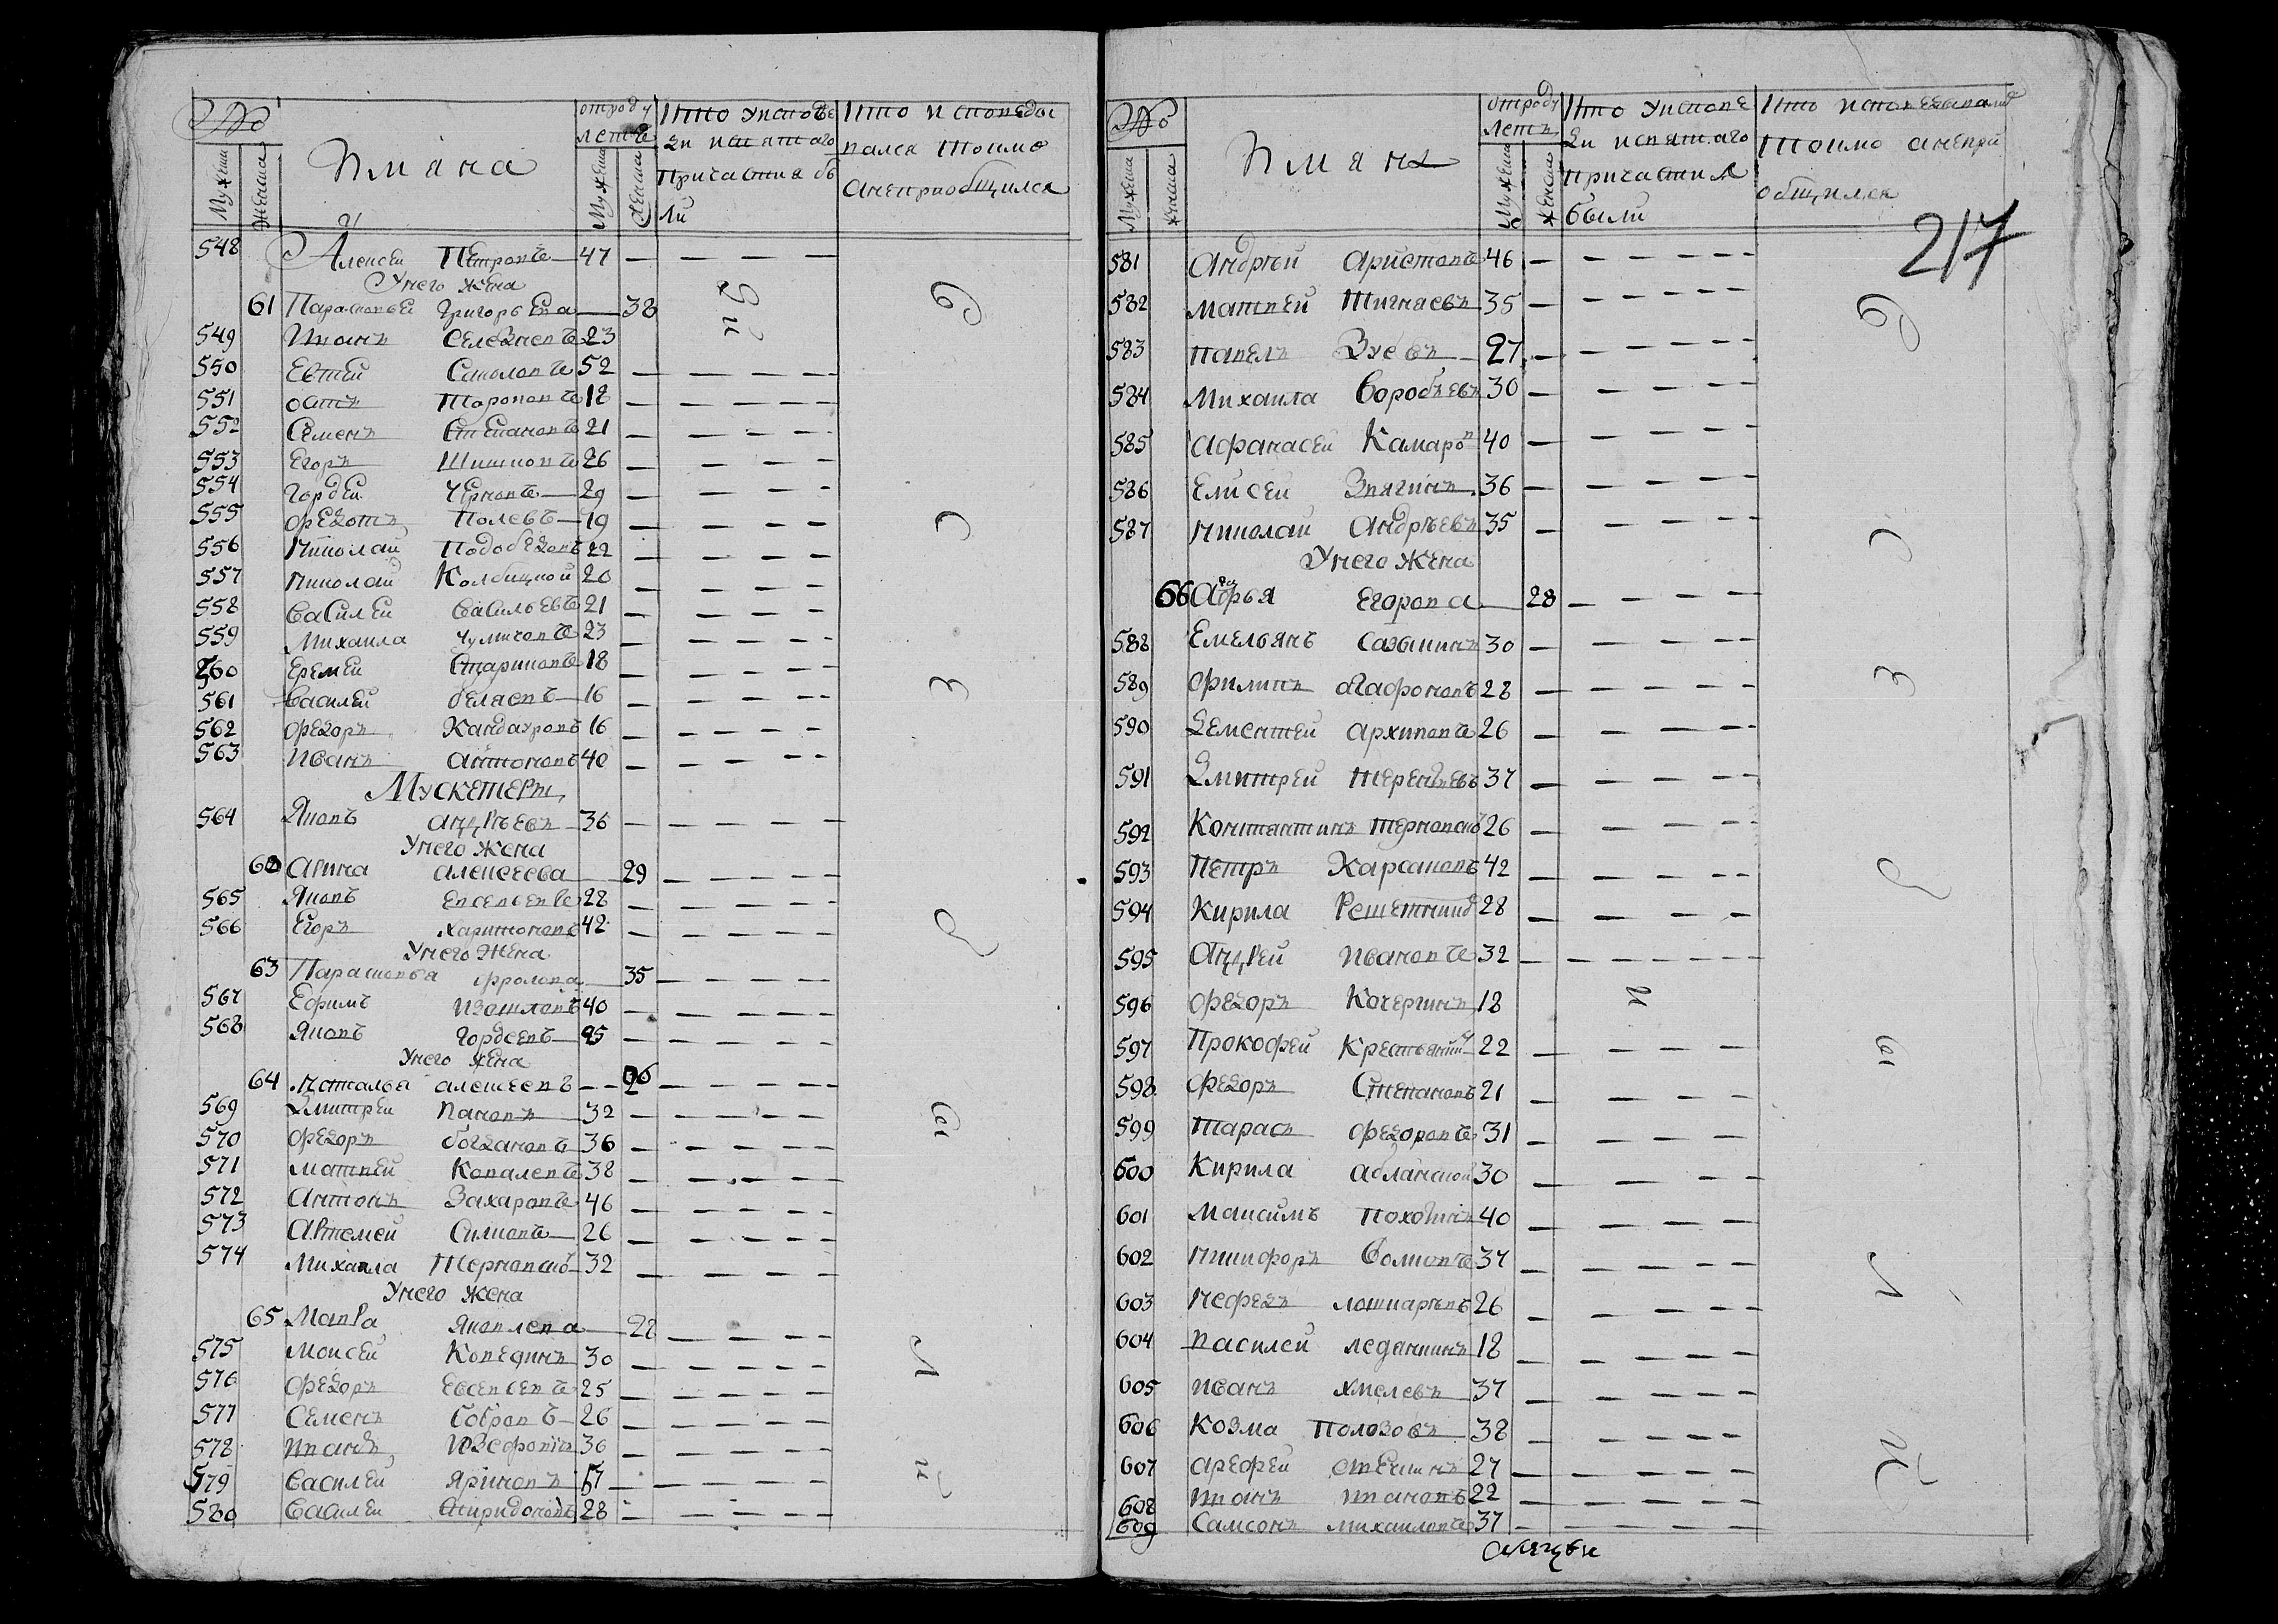 №
Мужеска
Женска
Имяна
отроду
летъ
Мужеска
Женска
Кто уисповѣ
ди исвятаго
Причастия бы
ли
Кто исповеды
вался токмо
анеприобщился
548 Алексеи Петровъ 47
Унего жена
61 Парасковьеи Григорьева 38
549 Иванъ Селезневъ 23
550 Евтей Соколовъ 52
551 осипъ Тороповъ 18
552 Семенъ Степановъ 21
553 Егоръ Шишковъ 26
554 Гордеи Черновъ 29
555 Федотъ Полевъ 19
556 Николай Подобедовъ 22
557 Николай Колбицкой 20
558 Василеи Васильевъ 21
559 Михаила Чулковъ 23
560 Еремеи Стариковъ 18
561 Василеи беляевъ 16
562 Федоръ Кандауровъ 16
563 Иванъ антоновъ 40
Мускетеръ
564 Яковъ андрѣевъ 36
Унего жена
62 арина алексеева 29
565 Яковъ евсевьевъ 28
566 Егоръ харитоновъ 42
Унего жена
63 Парасковья Фролова 35
567 Ефимъ 40
568 Яковъ Гордеевъ 25
Унего жена
64 Наталья алексеевъ 26
569 Дмитреи Пановъ 32
570 Федоръ богдановъ 36
571 Матвеи Ковалевъ 38
572 антонъ Захаровъ 46
573 артемеи Силковъ 26
574 Михаила Терновскои 32
Унего жена
65 Мавра Яковлева 22
575 Моисеи Копедикъ 30
576 Федоръ Евсевьевъ 25
577 Семенъ бобровъ 26
578 Иванъ 36
579 Василеи Яриковъ 57
580 Василеи Спиридоновъ 28
б
с
е
д
ы
л
и
№
Мужеска
женска
Имяна
отроду
летъ
Мужеска
женска
Кто уисповѣ
ди исвятаго
причастия
были
Кто исповедывали
токмо анепри
общился
217
581 андрей аристовъ 46
582 матвей Тигнаевъ 35
583 павелъ Зуевъ 27
584 Михаила воробьевъ 30
585 афанасеи Камаровъ 40
586 Елисеи Звягинъ 36
587 Николаи андрѣевъ 35
Унего жена
66 дарья егорова 28
588 Емельянъ Сазыкинъ 30
589 Филипъ агафоновъ 28
590 Дементеи архиповъ 26
591 Дмитреи Терентьевъ 37
592 Константинъ терновской 26
593 Петръ Карсаковъ 42
594 Кирила Решетников 28
595 андреи Ивановъ 32
596 Федоръ Кочергинъ 18
597 Прокофеи Крестьянин 22
598 Федоръ Степановъ 21
599 Тарасъ Федоровъ 31
600 Кирила абланской 30
601 Максимъ Похотин 40
602 Никифоръ волковъ 37
603 Нефедъ лошкаревъ 26
604 василеи ледянкинъ 18
605 Иванъ Хмелевъ 37
606 Козма Полозовъ 38
607 арефеи Стешинъ 27
608 иванъ ивановъ 22
609 Самсонъ михаиловъ 37
б
с
е
д
ы
л
и